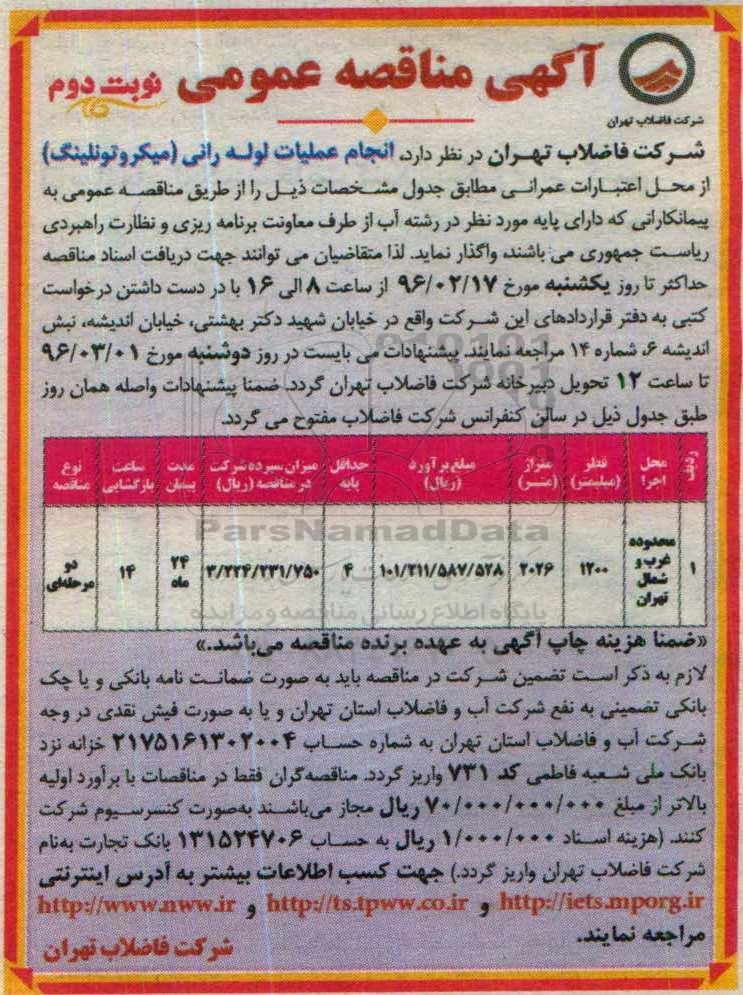 آگهی مناقصه عمومی نوبت دوم
شرکت فاضلاب تهران
شرکت فاضلاب تهران در نظر دارد، انجام عملیات لوله رانی (میکروتونلینگ)
از محل اعتبارات عمرانی مطابق جدول مشخصات ذیل را از طریق مناقصه عمومی به
پیمانکارانی که دارای پایه مورد نظر در رشته آب از طرف معاونت برنامه ریزی و نظارت راهبردی
ریاست جمهوری می باشند، واگذار نماید. لذا متقاضیان می توانند جهت دریافت اسناد مناقصه
حداکثر تا روز یکشنبه مورخ ۹۶/۰۲/۱۷ از ساعت ۸ الی ۱۶ با در دست داشتن درخواست
کتبی به دفتر قراردادهای این شرکت واقع در خیابان شهید دکتر بهشتی، خیابان اندیشه، نبش
اندیشه ۶، شماره ۱۴ مراجعه نمایند. پیشنهادات می بایست در روز دوشنبه مورخ ۹۶/۰۳/۰۱
تا ساعت ۱۲ تحویل دبیرخانه شرکت فاضلاب تهران گردد. ضمنا پیشنهادات واصله همان روز
طبق جدول ذیل در سالن کنفرانس شرکت فاضلاب مفتوح می گردد.
ردیف محل اجرا قطر (میلیمتر) متراژ (متر) مبلغ برآورد (ریال) حداقل پایه میزان سپرده شرکت در مناقصه (ریال) مدت پیمان ساعت بازگشایی نوع مناقصه
۱ محدوده غرب و شمال تهران ۱۲۰۰ ۲۰۲۶ ۱۰۱/۲۱۱/۵۸۷/۵۲۸ ۴ ۳/۲۲۴/۲۳۱/۷۵۰ ۲۴ ماه ۱۴ دو مرحله‌ای
ParsNamadData
پایگاه اطلاع رسانی مناقصه و مزایده
«ضمنا هزینه چاپ آگهی به عهده برنده مناقصه می‌باشد.»
لازم به ذکر است تضمین شرکت در مناقصه باید به صورت ضمانت نامه بانکی و یا چک
بانکی تضمینی به نفع شرکت آب و فاضلاب استان تهران و یا به صورت فیش نقدی در وجه
شرکت آب و فاضلاب استان تهران به شماره حساب ۲۱۷۵۱۶۱۳۰۲۰۰۴ خزانه نزد
بانک ملی شعبه فاطمی کد ۷۳۱ واریز گردد. مناقصه‌گران فقط در مناقصات با برآورد اولیه
بالاتر از مبلغ ۷۰/۰۰۰/۰۰۰/۰۰۰ ریال مجاز می‌باشند به‌صورت کنسرسیوم شرکت
کنند. (هزینه اسناد ۱/۰۰۰/۰۰۰ ریال به حساب ۱۳۱۵۲۴۷۰۶ بانک تجارت به‌نام
شرکت فاضلاب تهران واریز گردد.) جهت کسب اطلاعات بیشتر به آدرس اینترنتی
http://iets.mporg.ir و http://ts.tpww.co.ir و http://www.nww.ir
مراجعه نمایند.
شرکت فاضلاب تهران